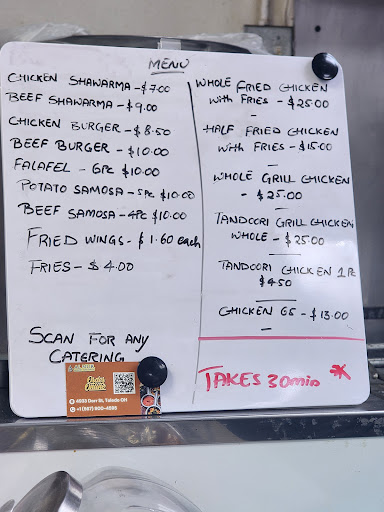 MENU
CHICKEN SHAWARMA - $7.00
BEEF SHAWARMA - $9.00
CHICKEN BURGER - $8.50
BEEF BURGER - $10.00
FALAFEL - 6PC $10.00
POTATO SAMOSA - 5PC $10.00
BEEF SAMOSA - 4PC $10.00
FRIED WINGS - $1.60 each
FRIES - $4.00
SCAN FOR ANY
CATERING
Order
Online
4933 Dorr St, Toledo OH
WHOLE FRIED CHICKEN
with FRIES - $25.00
HALF FRIED CHICKEN
with FRIES - $15.00
WHOLE GRILL CHICKEN
- $25.00
TANDOORI GRILL CHICKEN
WHOLE - $25.00
TANDOORI CHICKEN 1 PC
$4.50
CHICKEN 65 - $13.00
TAKES 30min *